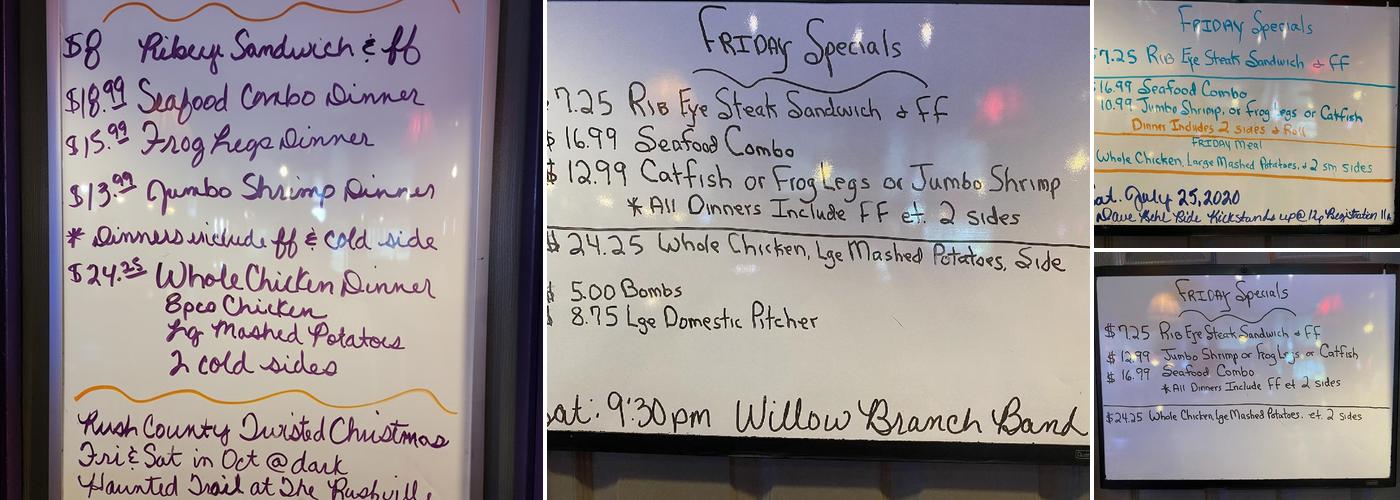 $8 Ribeye Sandwich & ff
$18.99 Seafood Combo Dinner
$15.99 Frog Legs Dinner
$13.99 Jumbo Shrimp Dinner
* Dinners include ff & cold side
$24.25 Whole Chicken Dinner
8pcs Chicken
Lg Mashed Potatoes
2 cold sides
Rush County Twisted Christmas
Fri & Sat in Oct @ dark
Haunted Trail at The Rushville
FRIDAY Specials
7.25 RIB Eye Steak Sandwich & FF
$ 16.99 Seafood Combo
$ 12.99 Catfish or Frog Legs or Jumbo Shrimp
* All Dinners Include FF et. 2 sides
$ 24.25 Whole Chicken, Lge Mashed Potatoes, Side
$ 5.00 Bombs
$ 8.75 Lge Domestic Pitcher
Sat: 9:30pm Willow Branch Band
FRIDAY Specials
7.25 RIB Eye Steak Sandwich & FF
$16.99 Seafood Combo
10.99 Jumbo Shrimp, or Frog Legs or Catfish
Dinner Includes 2 sides & Roll
FRIDAY Meal
Whole Chicken, Large Mashed Potatoes, & 2 sm sides
Sat. July 25, 2020
Dave Ride Kickstands up @ 12p Registration 11A
FRIDAY Specials
$ 7.25 RIB Eye Steak Sandwich & FF
$ 12.99 Jumbo Shrimp or Frog Legs or Catfish
$ 16.99 Seafood Combo
* All Dinners Include FF et 2 sides
$24.25 Whole Chicken, Lge Mashed Potatoes, et. 2 sides